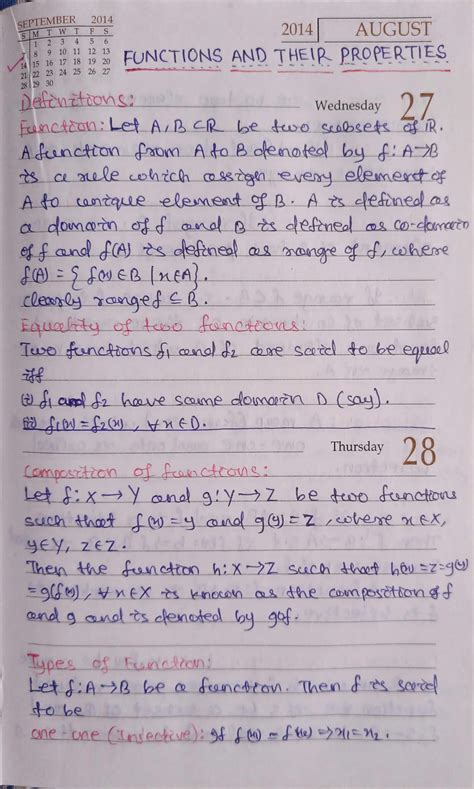 SEPTEMBER 2014
S M T W T F S
1 2 3 4 5 6
7 8 9 10 11 12 13
14 15 16 17 18 19 20
21 22 23 24 25 26 27
28 29 30
2014 AUGUST
FUNCTIONS AND THEIR PROPERTIES
Definitions:
Wednesday 27
Function: Let A, B ⊂ R be two subsets of R.
A function from A to B denoted by f: A→B
is a rule which assign every element of
A to unique element of B. A is defined as
a domain of f and B is defined as co-domain
of f and f(A) is defined as range of f, where
f(A) = { f(x) ∈ B | x ∈ A }.
clearly range f ⊆ B.
Equality of two functions:
Two functions f1 and f2 are said to be equal
iff
(i) f1 and f2 have same domain D (say).
(ii) f1(x) = f2(x), ∀ x ∈ D.
Thursday 28
Composition of functions:
Let f: X → Y and g: Y → Z be two functions
such that f(x) = y and g(y) = z, where x ∈ X,
y ∈ Y, z ∈ Z.
Then the function h: X→Z such that h(x) = z = g(y)
= g(f(x)), ∀ x ∈ X is known as the composition of f
and g and is denoted by gof.
Types of Function:
Let f: A→B be a function. Then f is said
to be
one one (Injective): If f(x1) = f(x2) ⇒ x1 = x2.